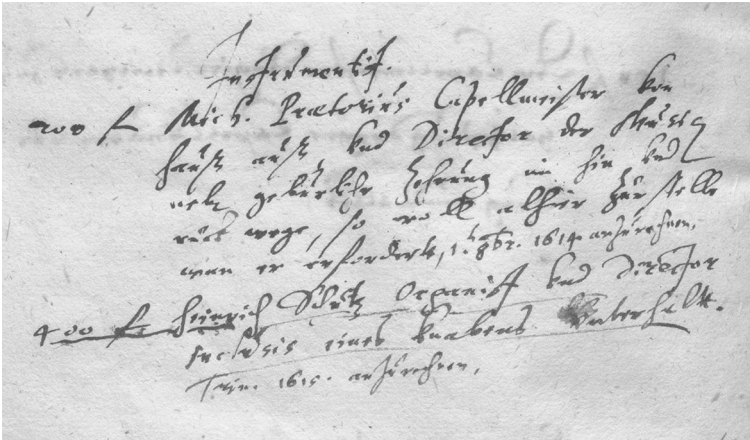 Instrumentist.
200 f Mich. Prætorius Capellmeister von
Hauß auß vnd Director der Music
neben gebürlicher Zehrung im hin vnd
rück wege, so woll alhier zur stelle
wan er erfordert, 1. 8br. 1614. anzurechnen.
400 f. Heinrich Schütz Organist vnd Director
inclusis eines knabens Vnterhalt.
Trin. 1615. anzurechnen.